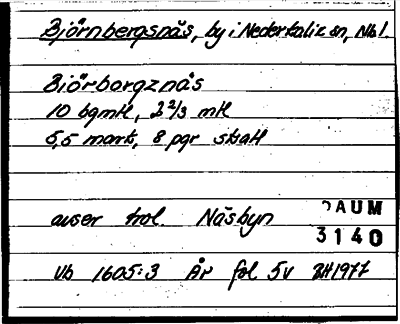 Björnbergsnäs, by i Nederkalix sn, Nbl
Biörborgznäs
10 bgmtl, 2 2/3 mtl
5,5 mark, 8 pgr skatt
avser trol. Näsbyn
DAUM
3140
Vb 1605:3 År fol 5v BH1977